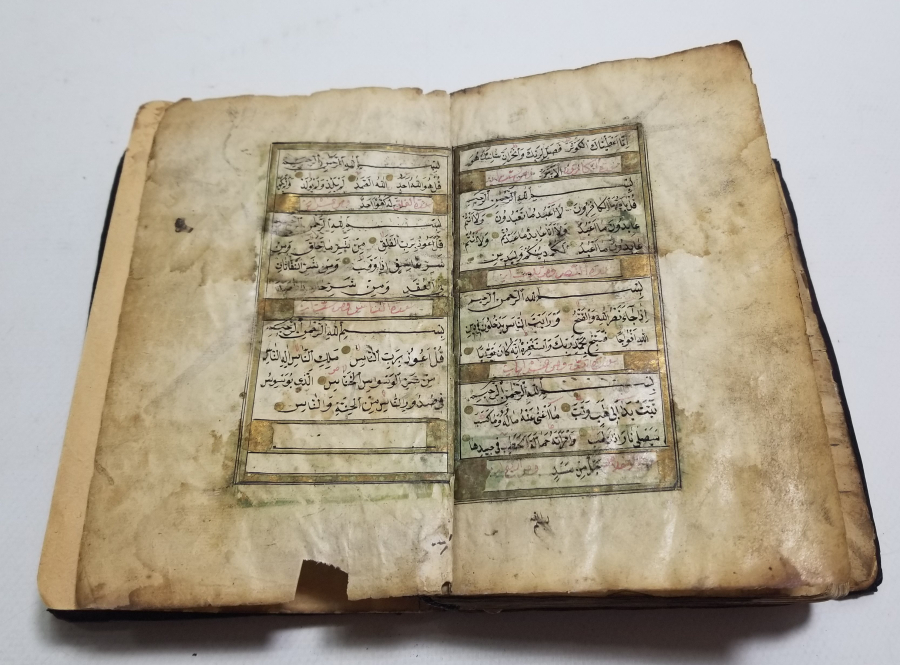 انا اعطيناك الكوثر فصل لربك وانحر ان شانئك هو
الابتر
بسم الله الرحمن الرحيم
قل يا ايها الكافرون لا اعبد ما تعبدون ولا انتم
عابدون ما اعبد ولا انا عابد ما عبدتم ولا انتم
عابدون ما اعبد لكم دينكم ولي دين
بسم الله الرحمن الرحيم
اذا جاء نصر الله والفتح ورايت الناس يدخلون في دين
الله افواجا فسبح بحمد ربك واستغفره انه كان توابا
بسم الله الرحمن الرحيم
تبت يدا ابي لهب وتب ما اغنى عنه ماله وما كسب
سيصلى نارا ذات لهب وامراته حمالة الحطب في جيدها
حبل من مسد
بسم الله الرحمن الرحيم
قل هو الله احد الله الصمد لم يلد ولم يولد ولم يكن
له كفوا احد
بسم الله الرحمن الرحيم
قل اعوذ برب الفلق من شر ما خلق ومن
شر غاسق اذا وقب ومن شر النفاثات
في العقد ومن شر حاسد
بسم الله الرحمن الرحيم
قل اعوذ برب الناس ملك الناس اله الناس
من شر الوسواس الخناس الذي يوسوس
في صدور الناس من الجنة والناس